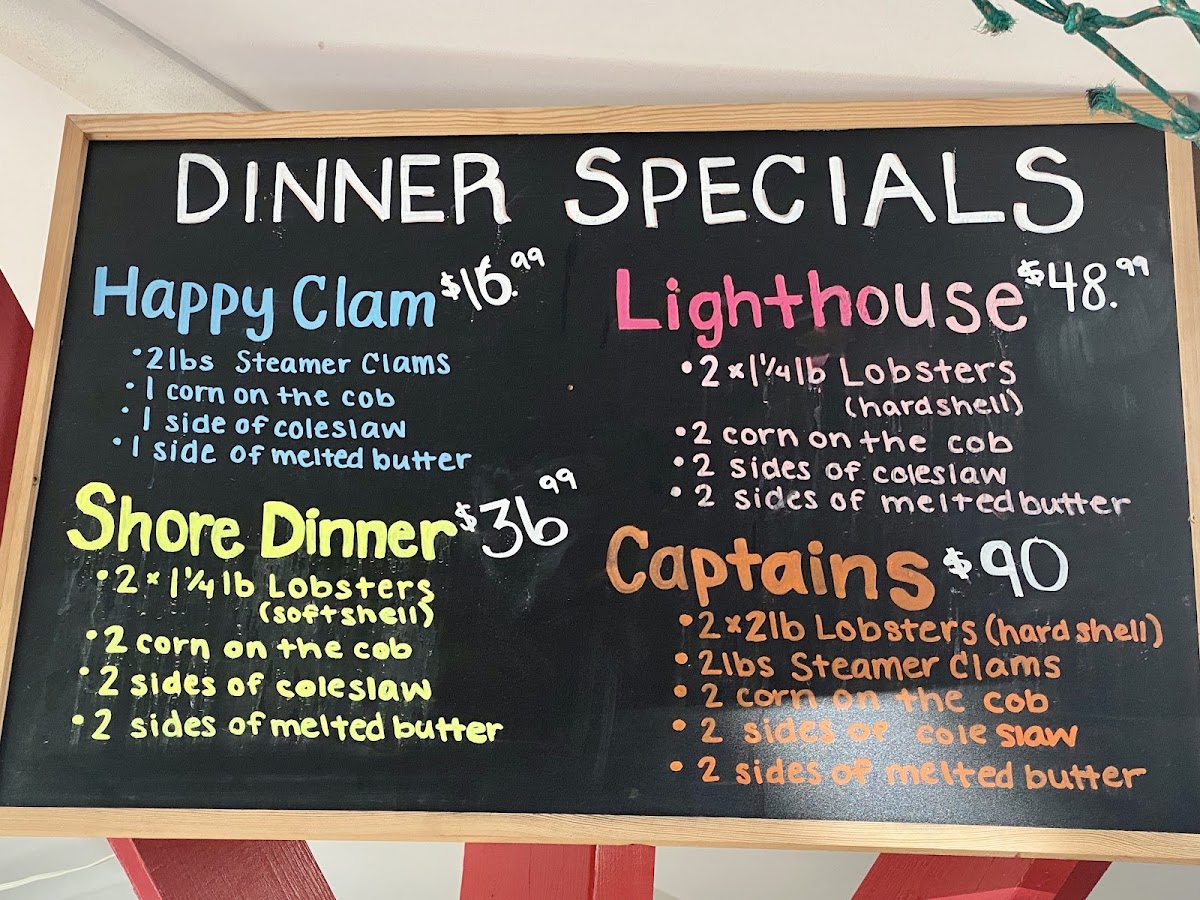 DINNER SPECIALS
Happy Clam $16.99
• 2lbs Steamer Clams
• 1 corn on the cob
• 1 side of coleslaw
• 1 side of melted butter
Shore Dinner $36 99
• 2 x 1 1/4 lb Lobsters
(softshell)
• 2 corn on the cob
• 2 sides of coleslaw
• 2 sides of melted butter
Lighthouse $48.99
• 2 x 1 1/4 lb Lobsters
(hardshell)
• 2 corn on the cob
• 2 sides of coleslaw
• 2 sides of melted butter
Captains $90
• 2 x 2lb Lobsters (hard shell)
• 2lbs Steamer Clams
• 2 corn on the cob
• 2 sides of cole slaw
• 2 sides of melted butter